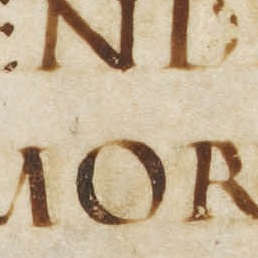 ENE
MOR